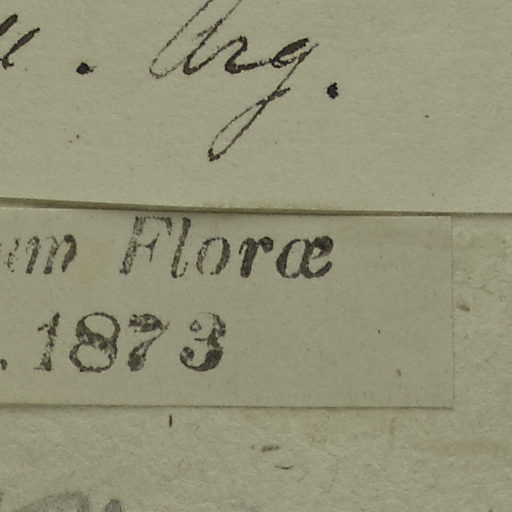 . Arg.
um Floræ
. 1873